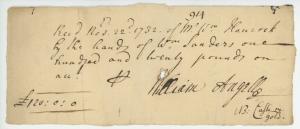 914
Recd Novr. 22d. 1732. of Mr. Wm. Hancock
by the hands of Wm Sanders one
hundred and twenty pounds on
acct.
£120: 0: 0
William Angell